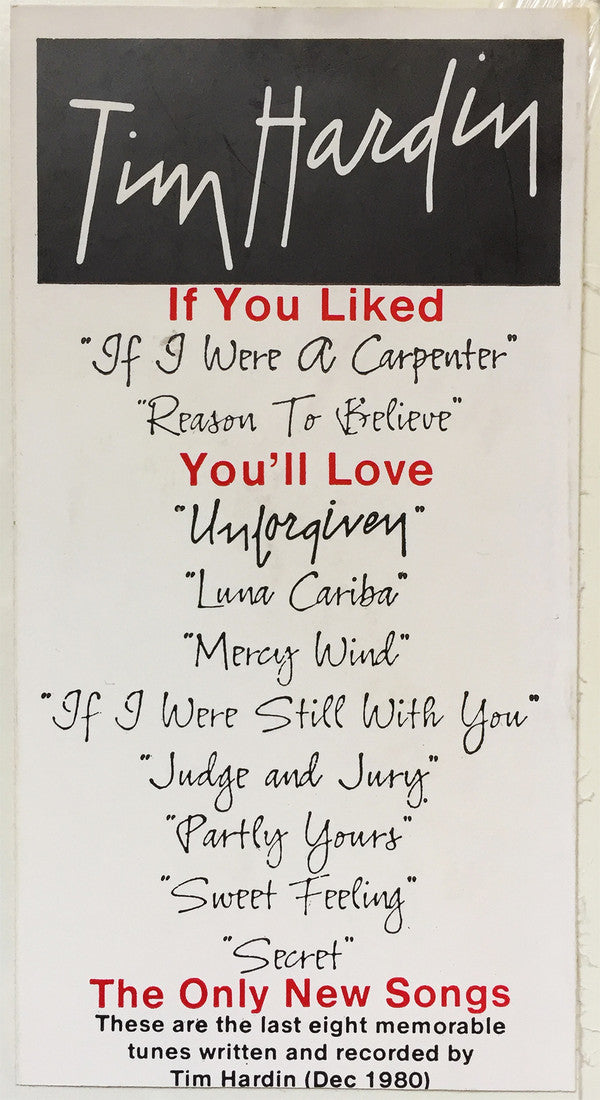 Tim Hardin
If You Liked
"If I Were A Carpenter"
"Reason To Believe"
You'll Love
"Unforgiven"
"Luna Cariba"
"Mercy Wind"
"If I Were Still With You"
"Judge and Jury"
"Partly Yours"
"Sweet Feeling"
"Secret"
The Only New Songs
These are the last eight memorable
tunes written and recorded by
Tim Hardin (Dec 1980)